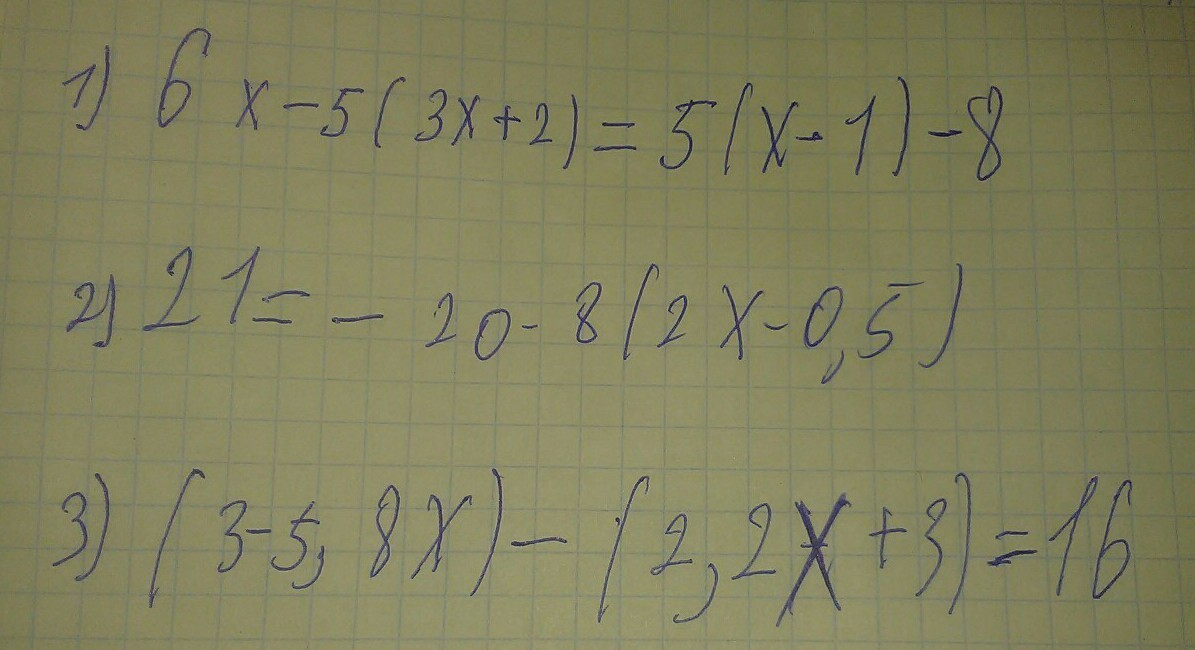 1) 6x-5(3x+2)=5(x-1)-8
2) 21=-20-8(2x-0,5)
3) (3-5,8x)-(2,2x+3)=16